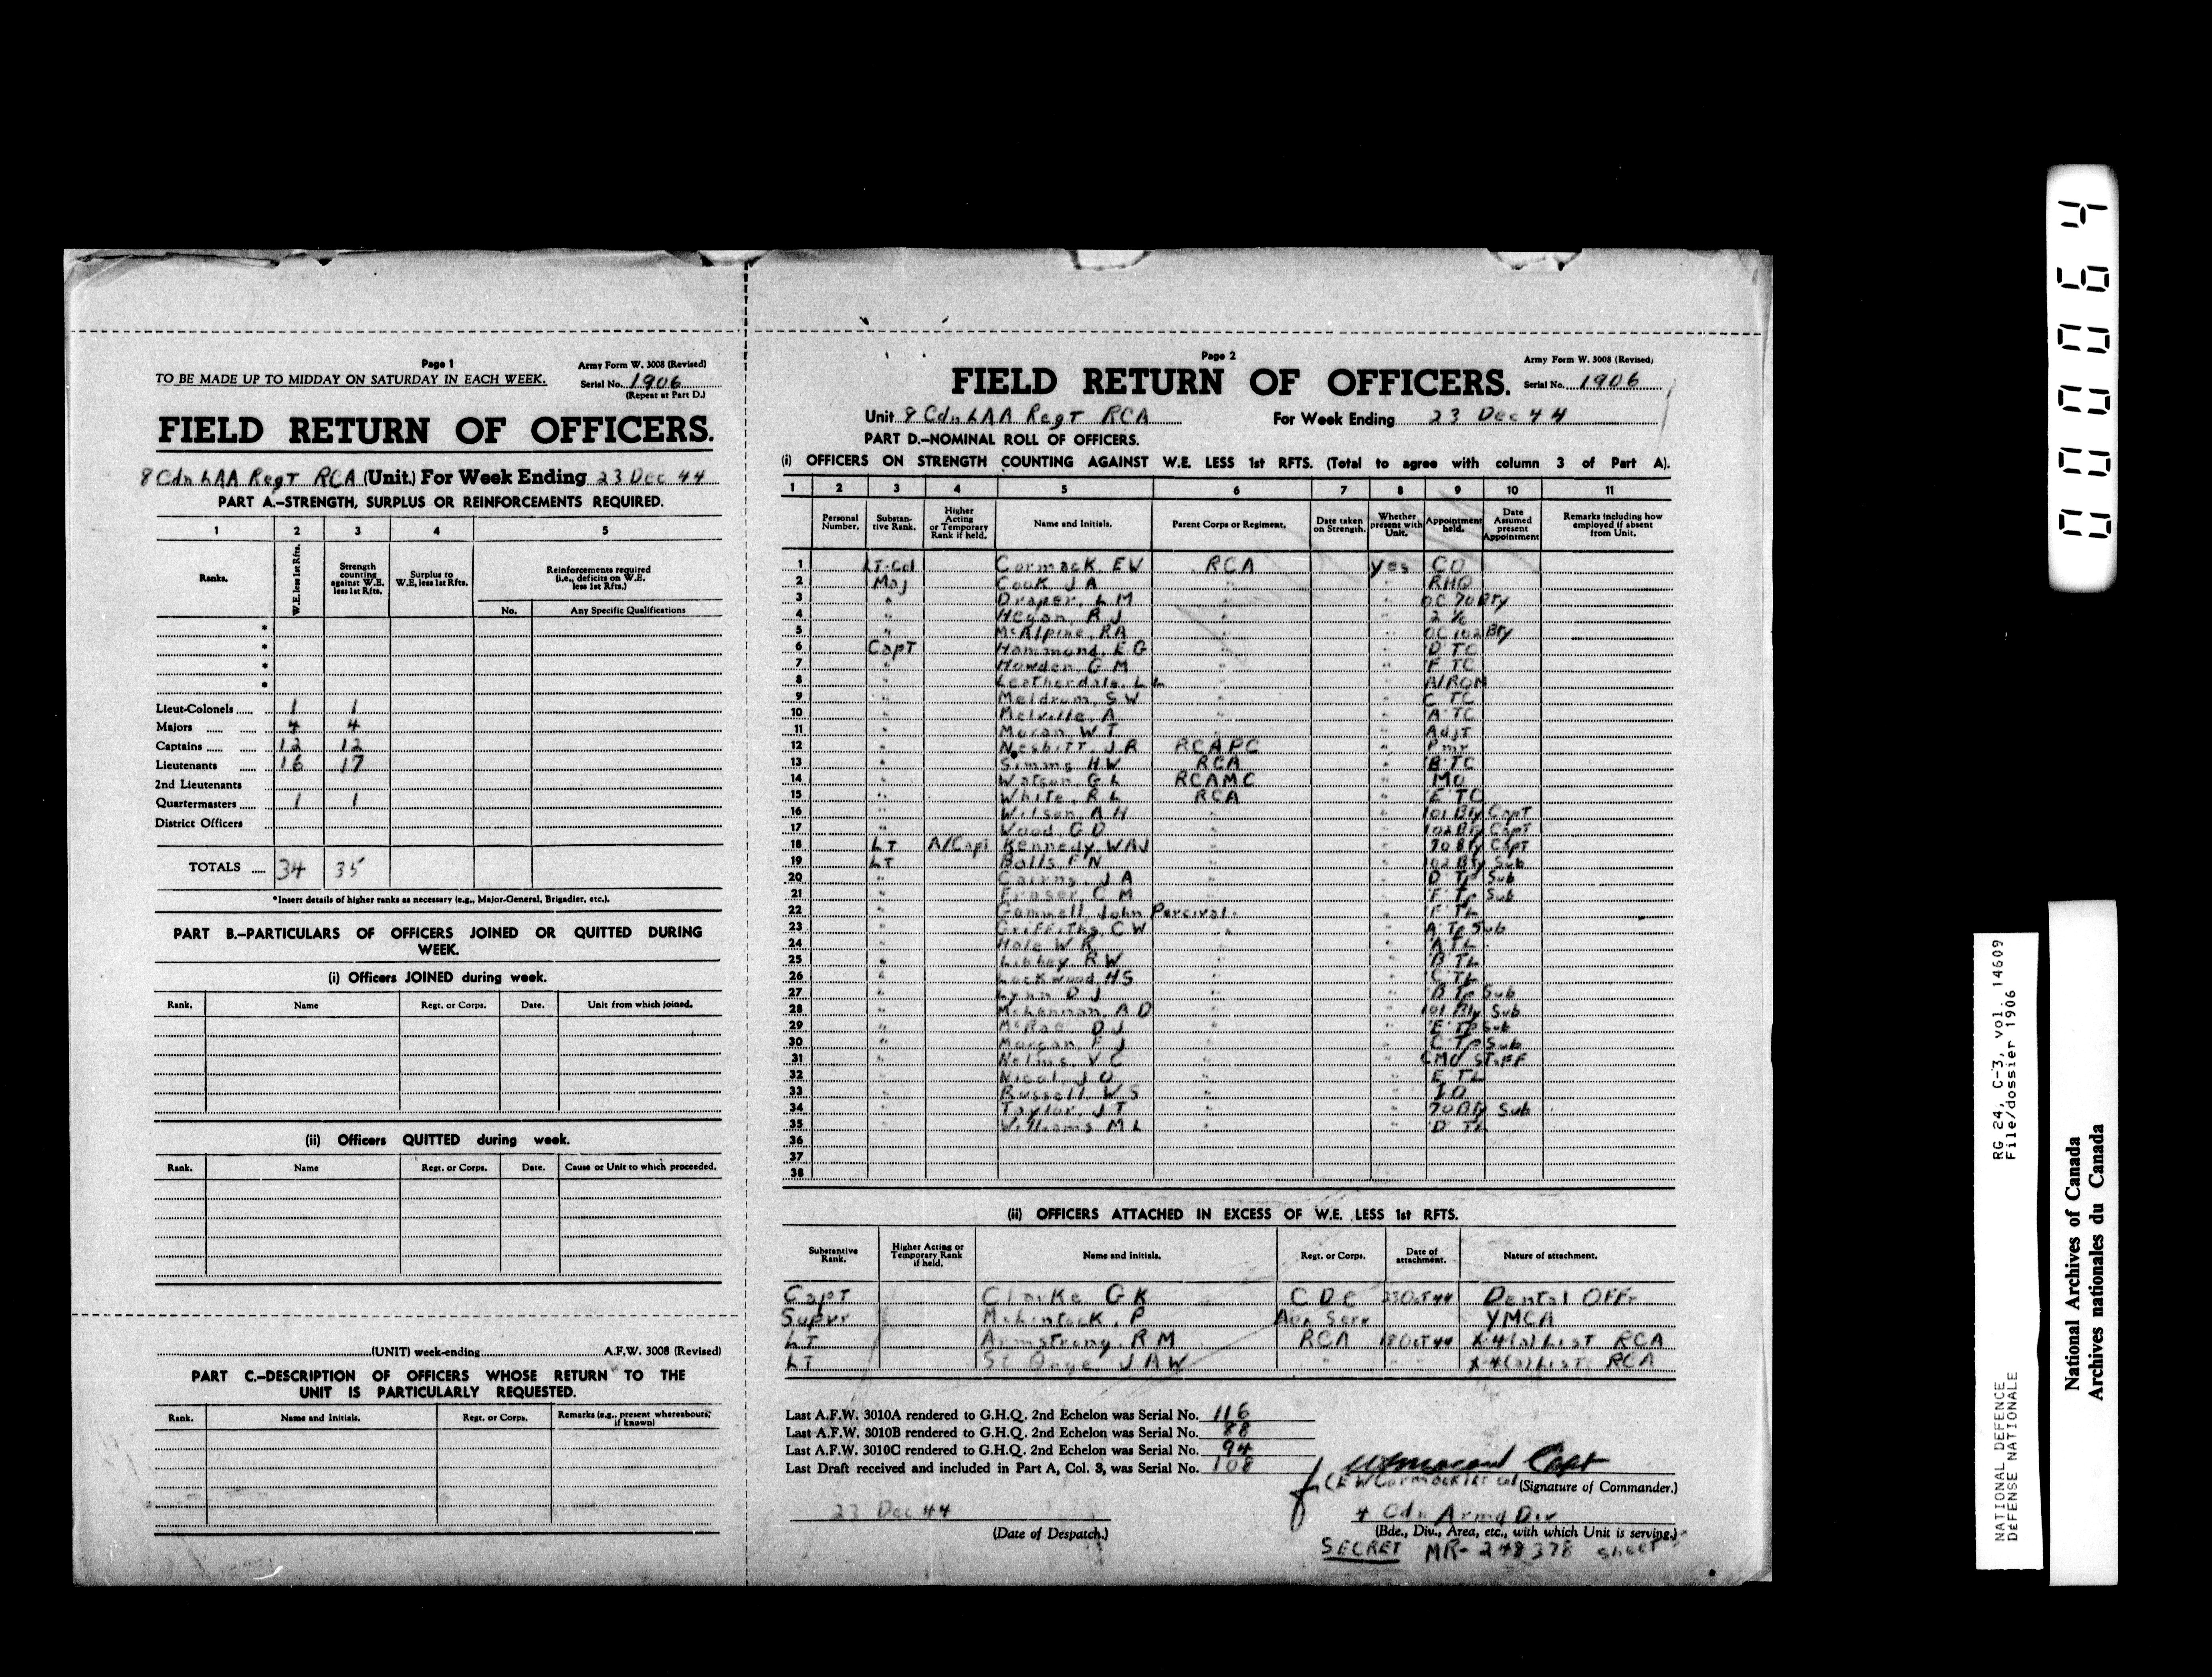 Page 1
Army Form W. 3008 (Revised)
TO BE MADE UP TO MIDDAY ON SATURDAY IN EACH WEEK.
Serial No. 1906
(Repeat at Part D.)
FIELD RETURN OF OFFICERS.
8 Cdn LAA RegT RCA (Unit.) For Week Ending 23 Dec 44
PART A.—STRENGTH, SURPLUS OR REINFORCEMENTS REQUIRED.
1 2 3 4 5
Ranks. W.E. less 1st Rfts. Strength counting against W.E. less 1st Rfts. Surplus to W.E. less 1st Rfts. Reinforcements required (i.e., deficits on W.E. less 1st Rfts.)
No. Any Specific Qualifications
*
*
*
*
Lieut-Colonels 1 1
Majors 4 4
Captains 12 12
Lieutenants 16 17
2nd Lieutenants
Quartermasters 1 1
District Officers
TOTALS 34 35
*Insert details of higher ranks as necessary (e.g., Major-General, Brigadier, etc.).
PART B.—PARTICULARS OF OFFICERS JOINED OR QUITTED DURING
WEEK.
(i) Officers JOINED during week.
Rank. Name Regt. or Corps. Date. Unit from which joined.
(ii) Officers QUITTED during week.
Rank. Name Regt. or Corps. Date. Cause or Unit to which proceeded.
(UNIT) week-ending A.F.W. 3008 (Revised)
PART C.—DESCRIPTION OF OFFICERS WHOSE RETURN TO THE
UNIT IS PARTICULARLY REQUESTED.
Rank. Name and Initials. Regt. or Corps. Remarks (e.g., present whereabouts, if known)
Page 2
Army Form W. 3008 (Revised)
FIELD RETURN OF OFFICERS.
Serial No. 1906
Unit 8 Cdn LAA RegT RCA For Week Ending 23 Dec 44
PART D.—NOMINAL ROLL OF OFFICERS.
(i) OFFICERS ON STRENGTH COUNTING AGAINST W.E. LESS 1st RFTS. (Total to agree with column 3 of Part A).
1 2 3 4 5 6 7 8 9 10 11
Personal Number. Substan-tive Rank. Higher Acting or Temporary Rank if held. Name and Initials. Parent Corps or Regiment. Date taken on Strength. Whether present with Unit. Appointment held. Date Assumed present Appointment Remarks including how employed if absent from Unit.
1 LT-Col Cormack EW RCA Yes CO
2 Maj Cook J A " " RHQ
3 " Draper, L M " " OC 70 Bty
4 " Hegan, R J " " 2 i/c
5 " McAlpine, RA " " OC 102 Bty
6 CapT Hammond, E G " " 'D' TC
7 " Howden G M " " 'F' TC
8 " Leatherdale, L L " " A/RQM
9 " Meldrum, S W " " 'C' TC
10 " Melville, A " " 'A' TC
11 " Moran W T " " AdjT
12 " NesbiTT, J R RCAPC " Pmr
13 " Simms HW RCA " 'B' TC
14 " Watson G L RCAMC " MO
15 " White, R L RCA " 'E' TC
16 " Wilson A H " " 101 Bty CapT
17 " Wood G D " " 102 Bty CapT
18 LT A/CapT Kennedy, WAJ " " 70 Bty CapT
19 LT Balls F N " " 102 Bty Sub
20 " Cairns, J A " " 'D' Tp Sub
21 " Fraser C M " " 'F' Tp Sub
22 " Gammell John Percival " " 'F' TL
23 " GriFFiths, C W " " 'A' Tp Sub
24 " Hole W R " " 'A' TL
25 " Libbey R W " " 'B' TL
26 " Lockwood, HS " " 'C' TL
27 " Lynn D J " " 'B' Tp Sub
28 " McLennan, A D " " 101 Bty Sub
29 " McRae D J " " 'E' Tp Sub
30 " Morgan F J " " 'C' Tp Sub
31 " Nelms V C " " CMO STaFF
32 " Nicol J O " " 'E' TL
33 " Russell W S " " IO
34 " Taylor, J T " " 70 Bty Sub
35 " Williams M L " " 'D' TL
36
37
38
(ii) OFFICERS ATTACHED IN EXCESS OF W.E. LESS 1st RFTS.
Substantive Rank. Higher Acting or Temporary Rank if held. Name and Initials. Regt. or Corps. Date of attachment. Nature of attachment.
CapT Clarke G K CDC 23 OcT 44 Dental OFFr
Supvr McLintock, P Aux Serv YMCA
LT Armstrong, R M RCA 18 OcT 44 X-4(a) LisT RCA
LT St Onge J A W " " X-4(a) LisT RCA
Last A.F.W. 3010A rendered to G.H.Q. 2nd Echelon was Serial No. 116
Last A.F.W. 3010B rendered to G.H.Q. 2nd Echelon was Serial No. 88
Last A.F.W. 3010C rendered to G.H.Q. 2nd Echelon was Serial No. 94
Last Draft received and included in Part A, Col. 3, was Serial No. 108
WTMoran Capt
f (E W Cormack) Lt Col (Signature of Commander.)
23 Dec 44
(Date of Despatch.)
4 Cdn Armd Div
(Bde., Div., Area, etc., with which Unit is serving.)
SECRET MR- 248378 sheet
000064
RG 24, C-3, vol. 14609
File/dossier 1906
NATIONAL DEFENCE
DÉFENSE NATIONALE
National Archives of Canada
Archives nationales du Canada